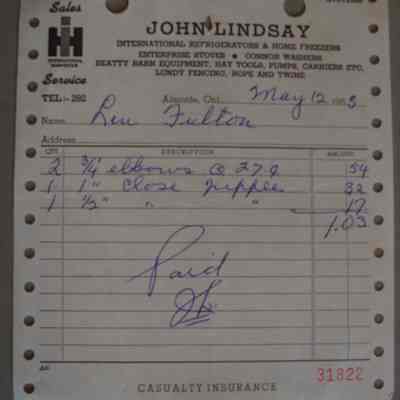 Sales
SYSTEMS
IH
INTERNATIONAL
HARVESTER
Service
JOHN LINDSAY
INTERNATIONAL REFRIGERATORS & HOME FREEZERS
ENTERPRISE STOVES • CONNOR WASHERS
BEATTY BARN EQUIPMENT, HAY TOOLS, PUMPS, CARRIERS ETC.
LUNDY FENCING, ROPE AND TWINE
TEL:- 292
Ont. May 12 1953
Name Len Fulton
Address
QTY. DESCRIPTION AMOUNT
2 3/4 elbows @ 27¢ 54
1 1" Close Nipples 32
1 1/2" " " 17
1.03
Paid
JL
31822
CASUALTY INSURANCE